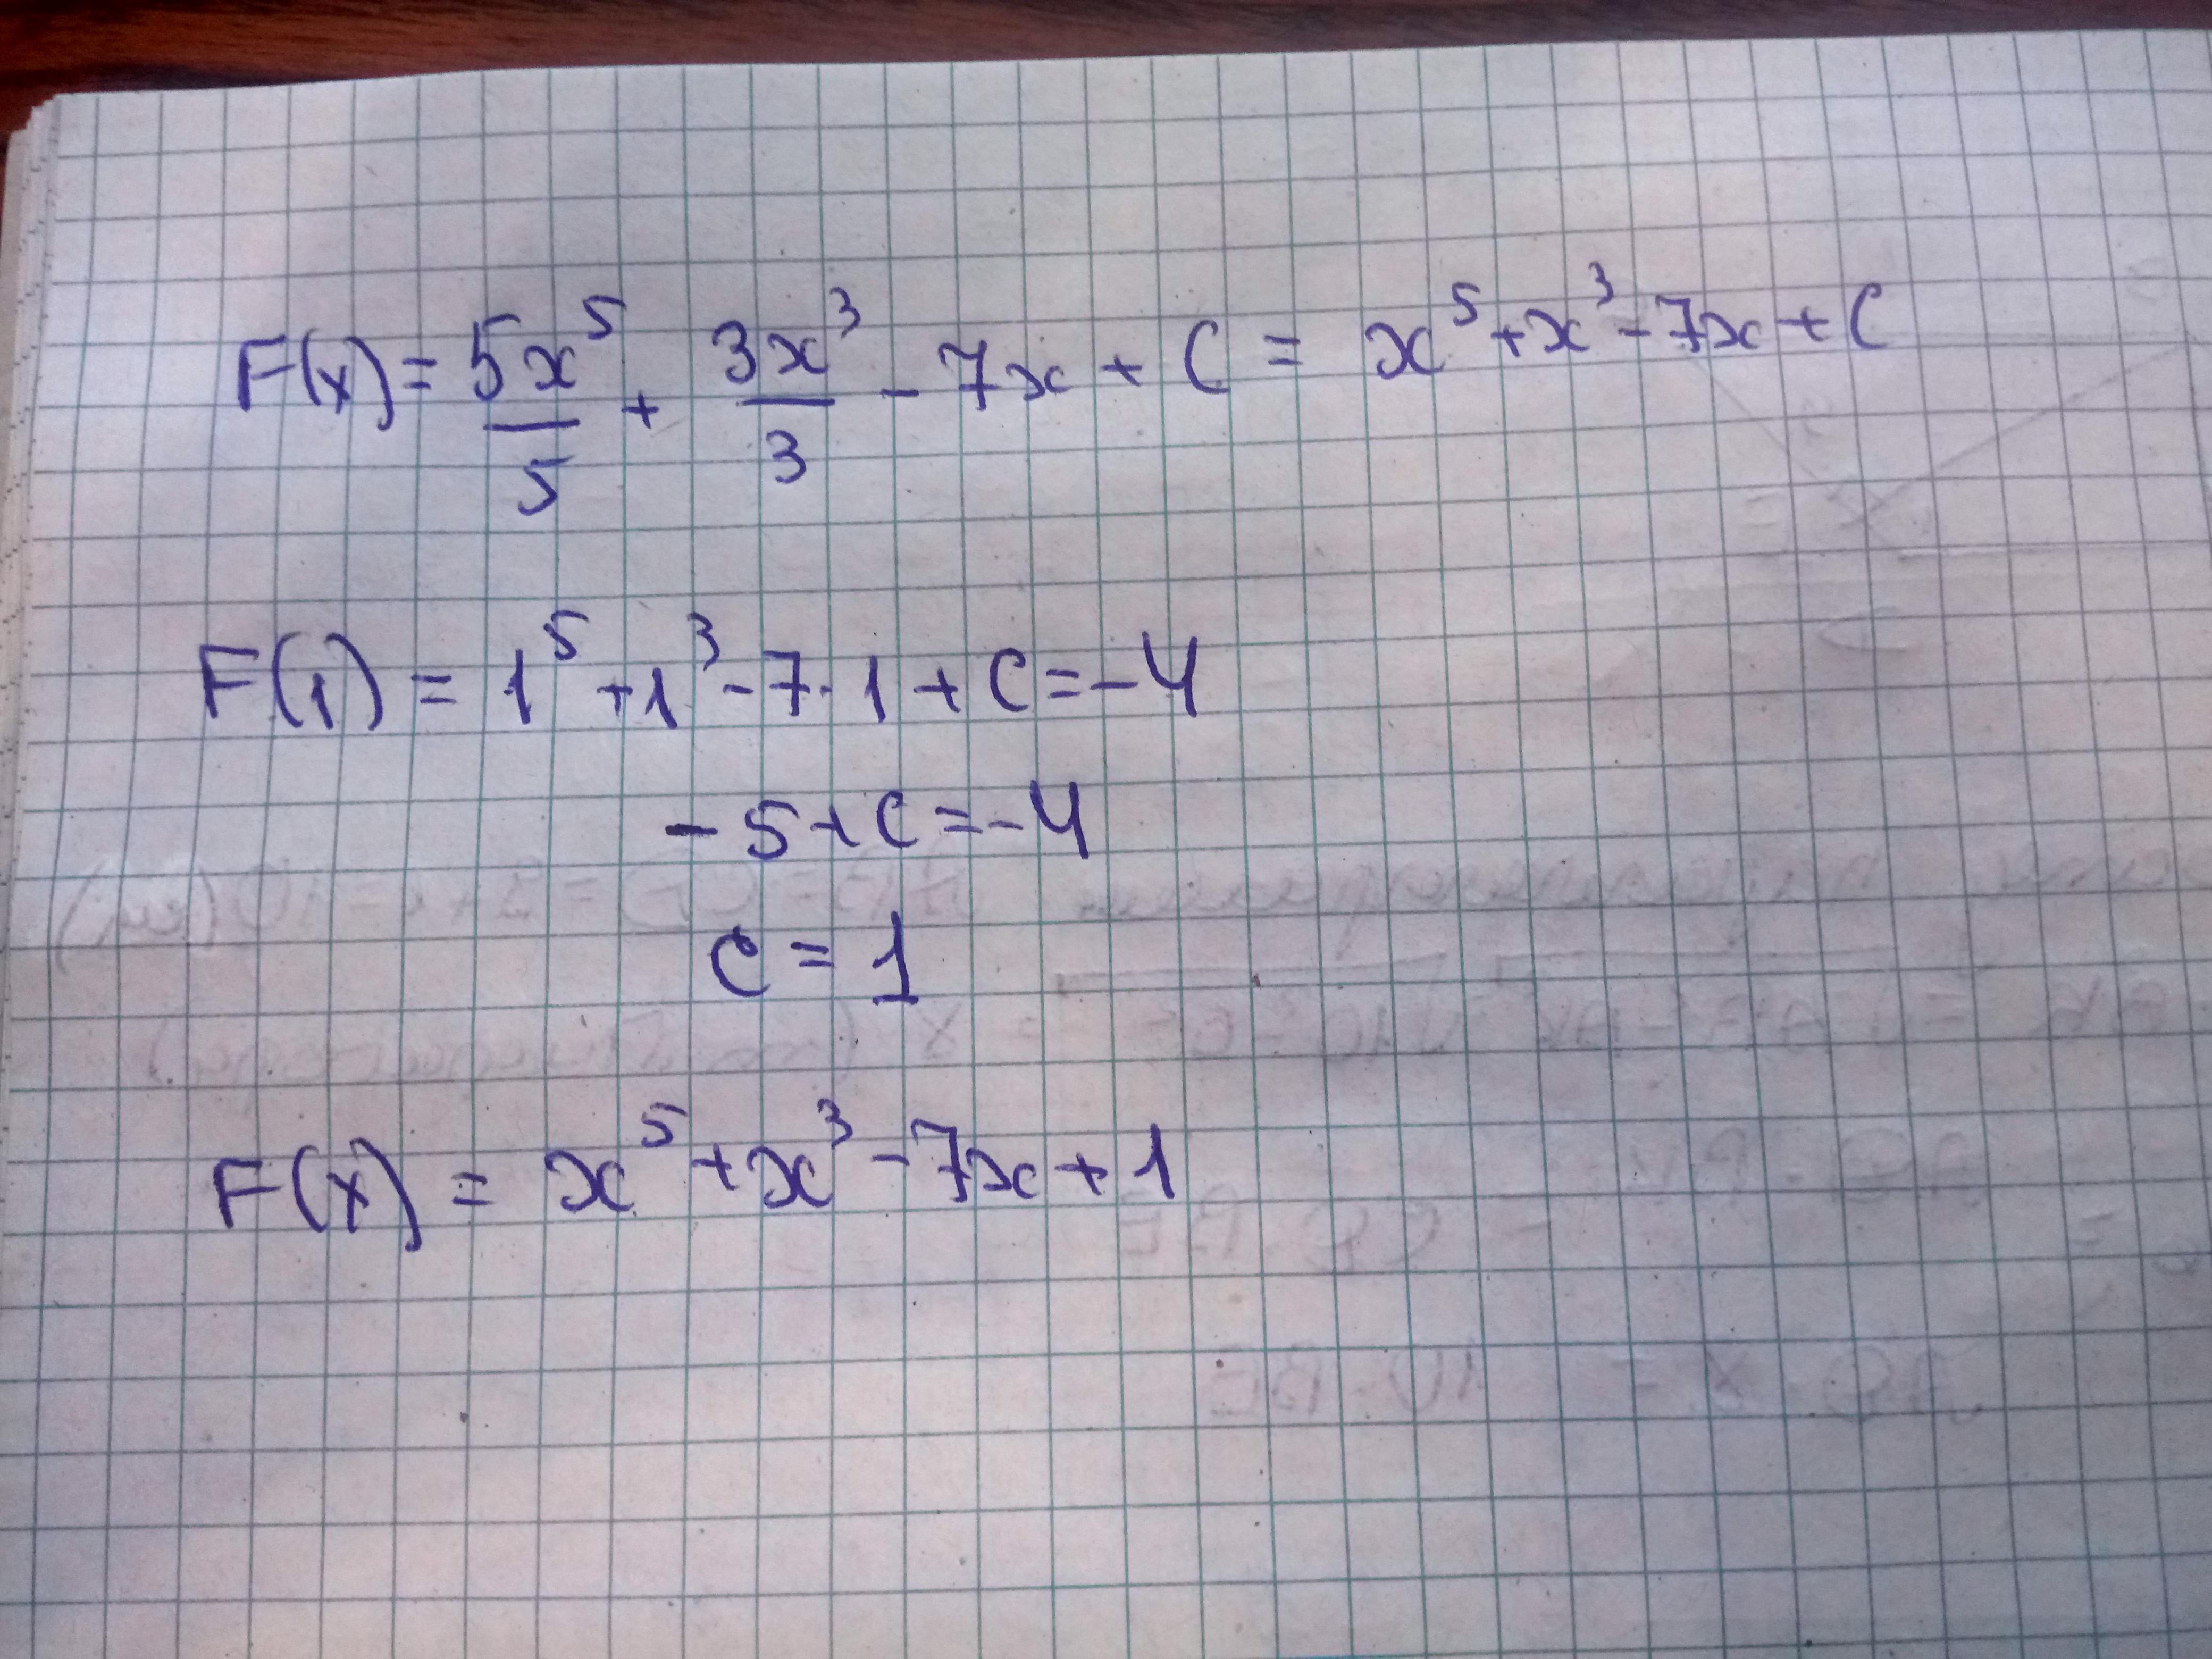 F(x) = 5x⁵/5 + 3x³/3 - 7x + C = x⁵ + x³ - 7x + C
F(1) = 1⁵ + 1³ - 7·1 + C = -4
-5 + C = -4
C = 1
F(x) = x⁵ + x³ - 7x + 1